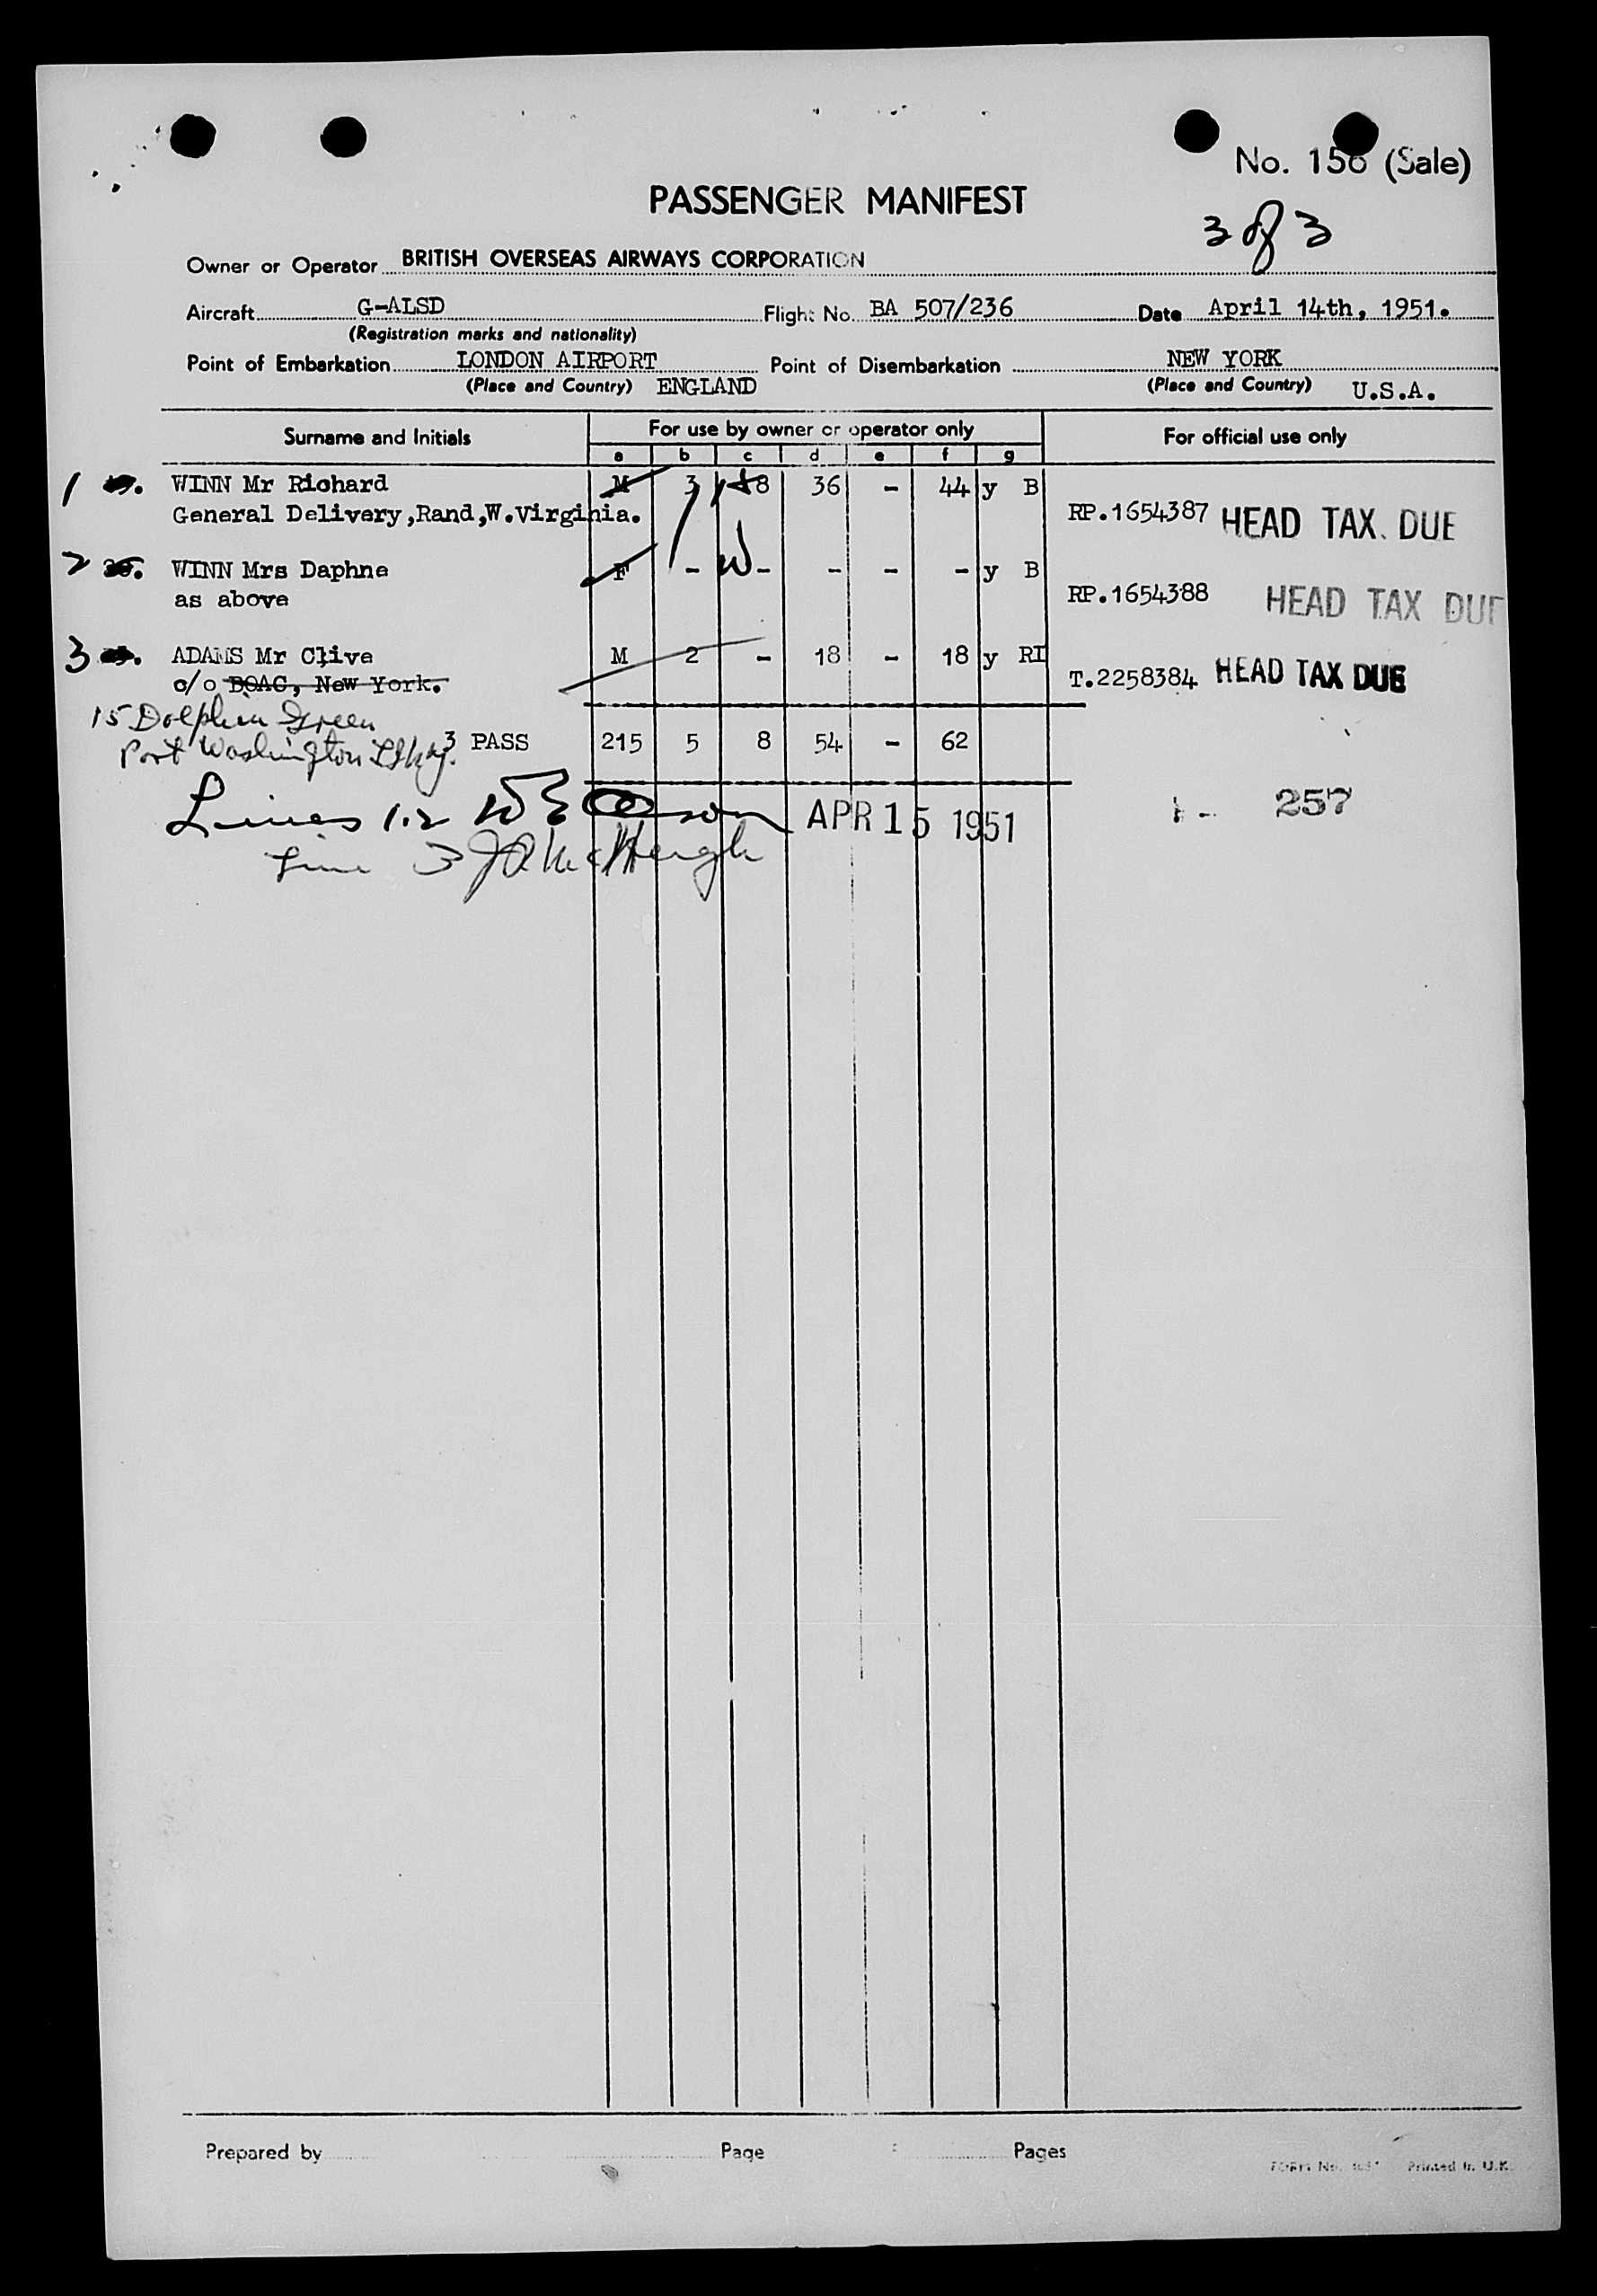 No. 156 (Sale)
PASSENGER MANIFEST
3 of 3
Owner or Operator BRITISH OVERSEAS AIRWAYS CORPORATION
Aircraft G-ALSD Flight No. BA 507/236 Date April 14th, 1951.
(Registration marks and nationality)
Point of Embarkation LONDON AIRPORT Point of Disembarkation NEW YORK
(Place and Country) ENGLAND (Place and Country) U.S.A.
Surname and Initials For use by owner or operator only For official use only
a b c d e f g
1 WINN Mr Richard M 3 8 36 - 44 y B
General Delivery,Rand,W.Virginia. RP.1654387 HEAD TAX DUE
2 WINN Mrs Daphne F - - - - - y B
as above RP.1654388 HEAD TAX DUE
3 ADAMS Mr Clive M 2 - 18 - 18 y RI
c/o BOAC, New York. T.2258384 HEAD TAX DUE
15 Dolphin Green
Port Washington
3 PASS 215 5 8 54 - 62
Lines 1.2 APR 15 1951 257
Line 3
Prepared by Page Pages
Printed in U.K.